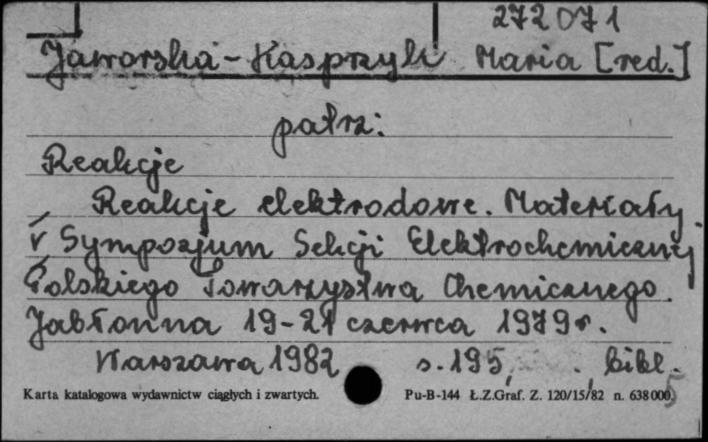 272071
Jaworska-Kasprzyk Maria [red.]
patrz:
Reakcje
Reakcje elektrodowe. Materiały
V Sympozjum Sekcji Elektrochemicznej
Polskiego Towarzystwa Chemicznego.
Jabłonna 19-21 czerwca 1979 r.
Warszawa 1982 s. 195, , bibl.
Karta katalogowa wydawnictw ciągłych i zwartych. Pu-B-144 Ł.Z.Graf. Z. 120/15/82 n. 638000